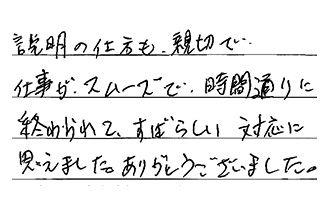 説明の仕方も、親切で…
仕事が、スムーズで、時間通りに
終わられて、すばらしい 対応に
思えました。ありがとうございました。